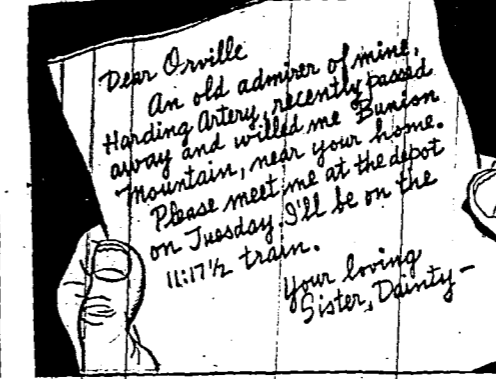 Dear Orville
An old admirer of mine,
Harding Artery, recently passed
away and willed me Bunion
Mountain, near your home.
Please meet me at the depot
on Tuesday. I'll be on the
11:17½ train.
Your loving
Sister, Dainty—